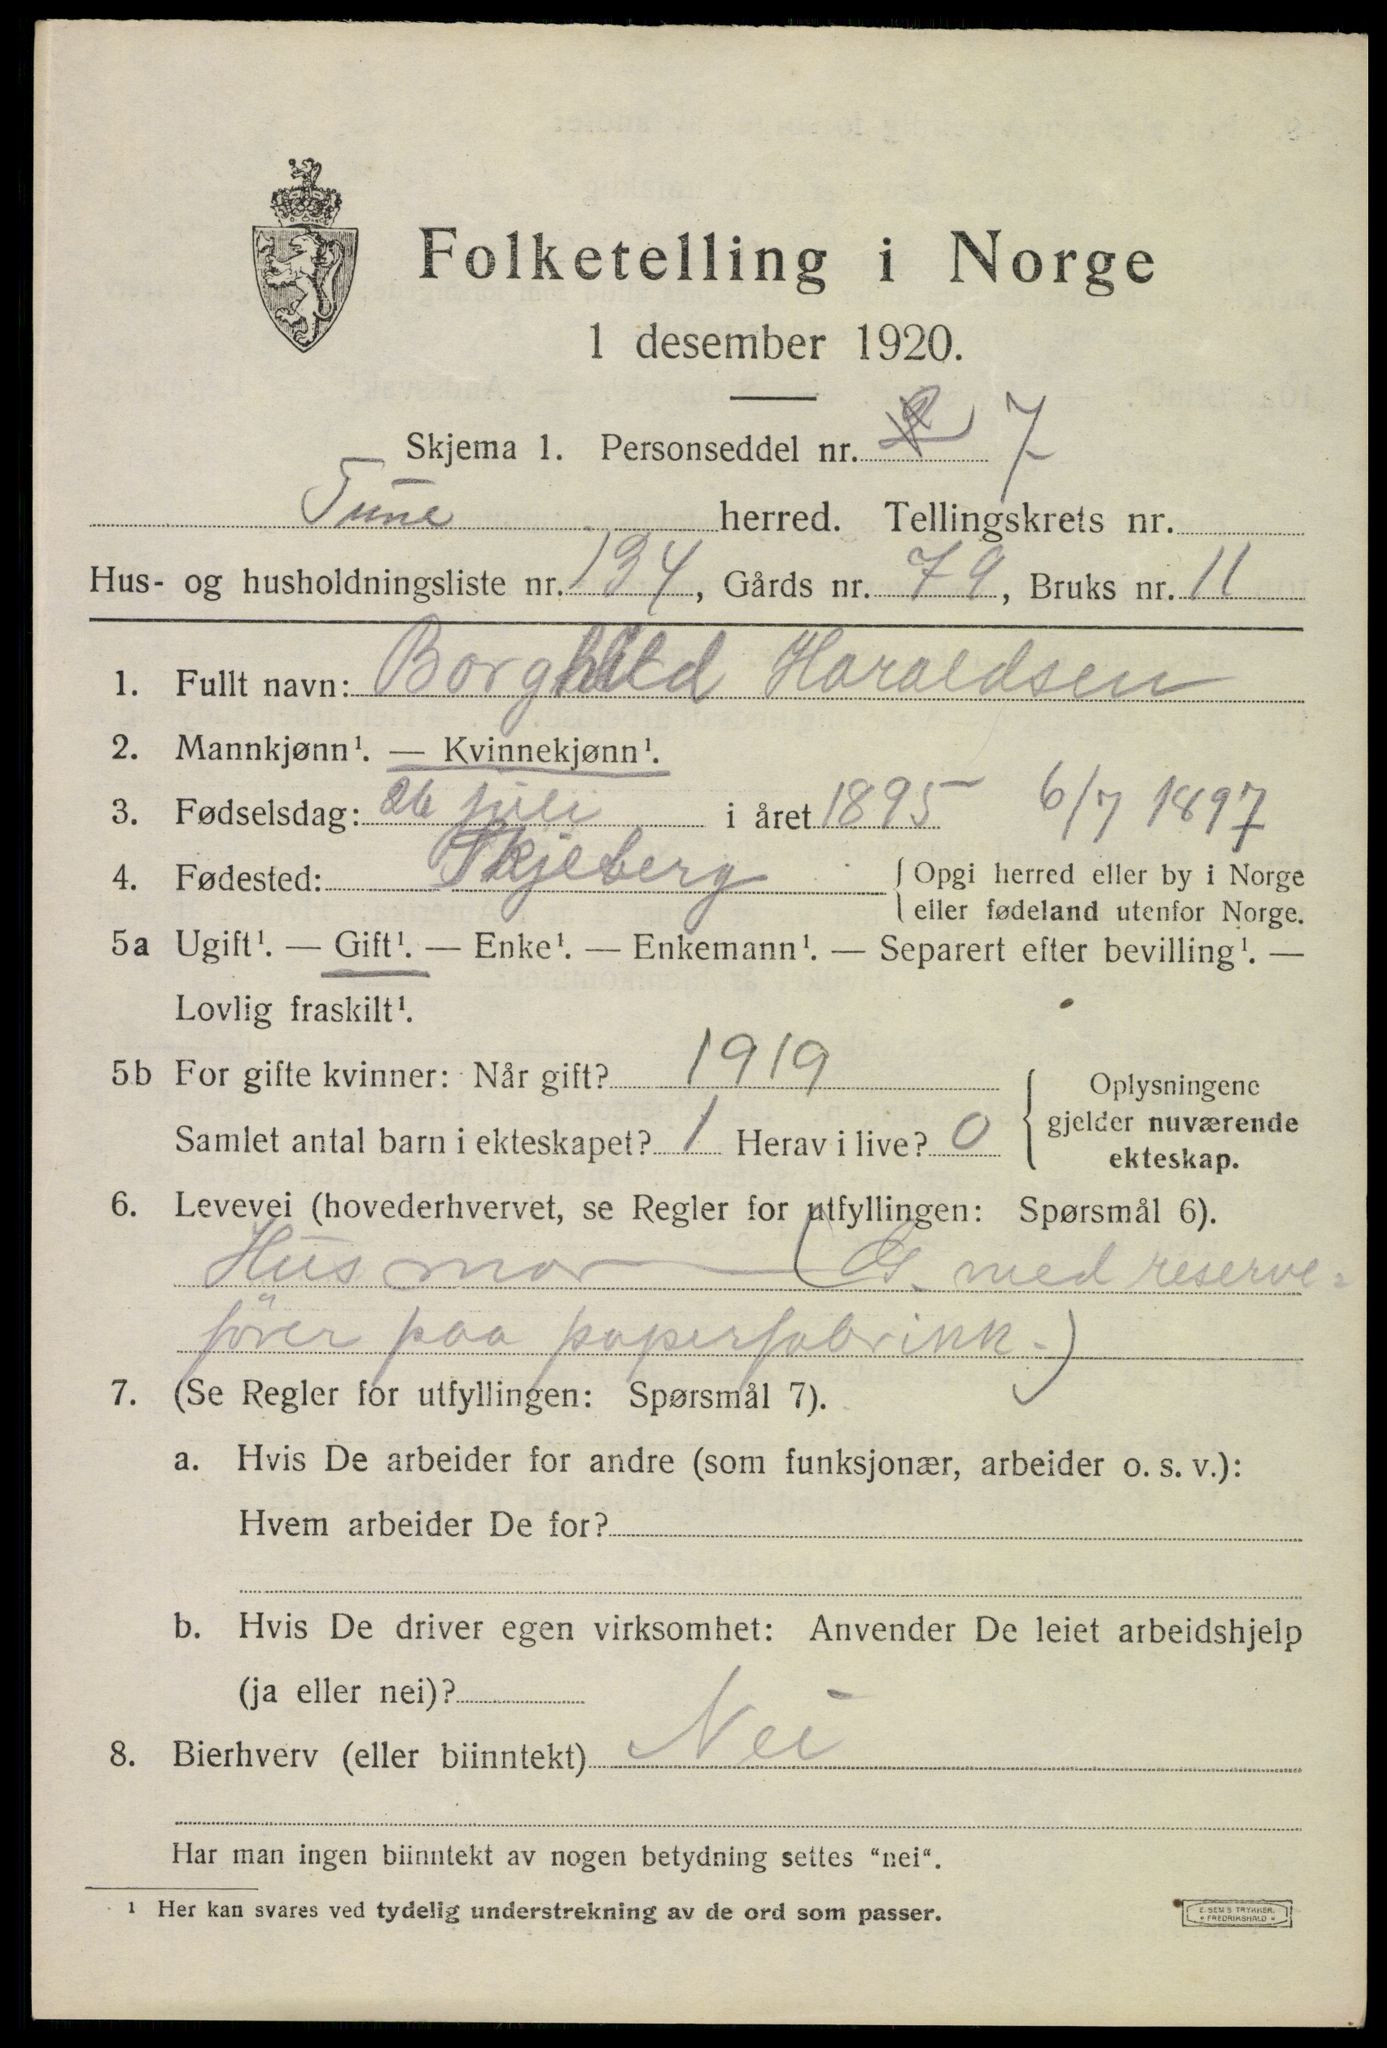 Folketelling i Norge
1 desember 1920.
Skjema 1. Personseddel nr. 2 7
Tune herred. Tellingskrets nr.
Hus- og husholdningsliste nr. 134, Gårds nr. 79, Bruks nr. 11
1. Fullt navn: Borghild Haraldsen
2. Mannkjønn¹. — Kvinnekjønn¹.
3. Fødselsdag: 26 juli i året 1895 6/7 1897
4. Fødested: Skjeberg { Opgi herred eller by i Norge
eller fødeland utenfor Norge.
5a Ugift¹. — Gift¹. — Enke¹. — Enkemann¹. — Separert efter bevilling¹. —
Lovlig fraskilt¹.
5b For gifte kvinner: Når gift? 1919
Samlet antal barn i ekteskapet? 1 Herav i live? 0
{ Oplysningene
gjelder nuværende
ekteskap.
6. Levevei (hovederhvervet, se Regler for utfyllingen: Spørsmål 6).
Husmor — (G. med reserve=
fører paa papirfabrikk.)
7. (Se Regler for utfyllingen: Spørsmål 7).
a. Hvis De arbeider for andre (som funksjonær, arbeider o. s. v.):
Hvem arbeider De for?
b. Hvis De driver egen virksomhet: Anvender De leiet arbeidshjelp
(ja eller nei)?
8. Bierhverv (eller biinntekt) Nei
Har man ingen biinntekt av nogen betydning settes "nei".
¹ Her kan svares ved tydelig understrekning av de ord som passer.
E. SEM'S TRYKKERI
FREDRIKSHALD